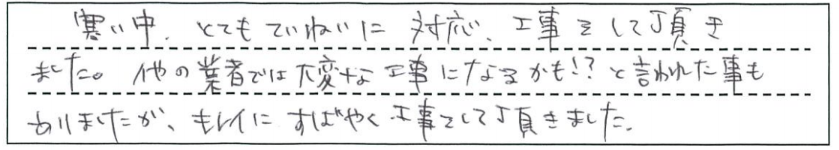 寒い中、とてもていねいに対応、工事をして頂き
ました。他の業者では大変な工事になるかも!?と言われた事も
ありましたが、キレイにすばやく工事をして頂きました。